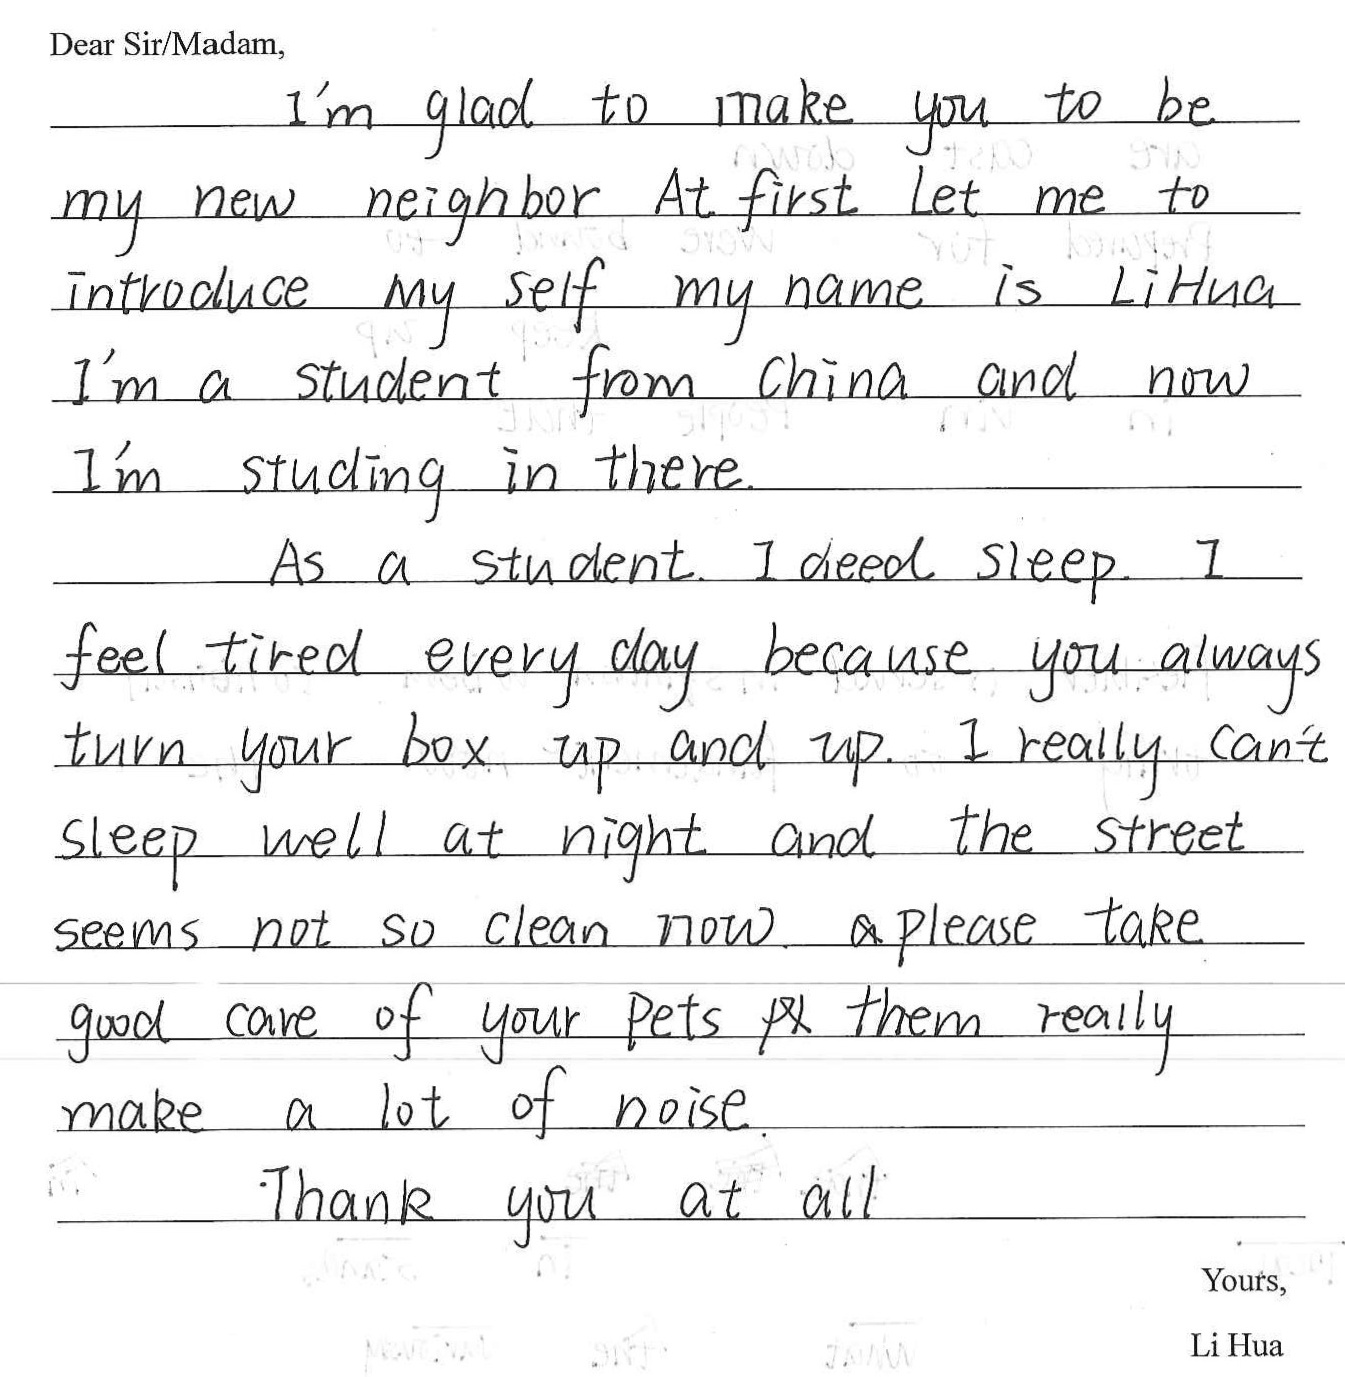 Dear Sir/Madam,
I'm glad to make you to be
my new neighbor At first Let me to
introduce my self my name is LiHua
I'm a student from China and now
I'm studing in there.
As a student. I deed sleep. I
feel tired every day because you always
turn your box up and up. I really can't
sleep well at night and the street
seems not so clean now. please take
good care of your pets them really
make a lot of noise.
Thank you at all
Yours,
Li Hua